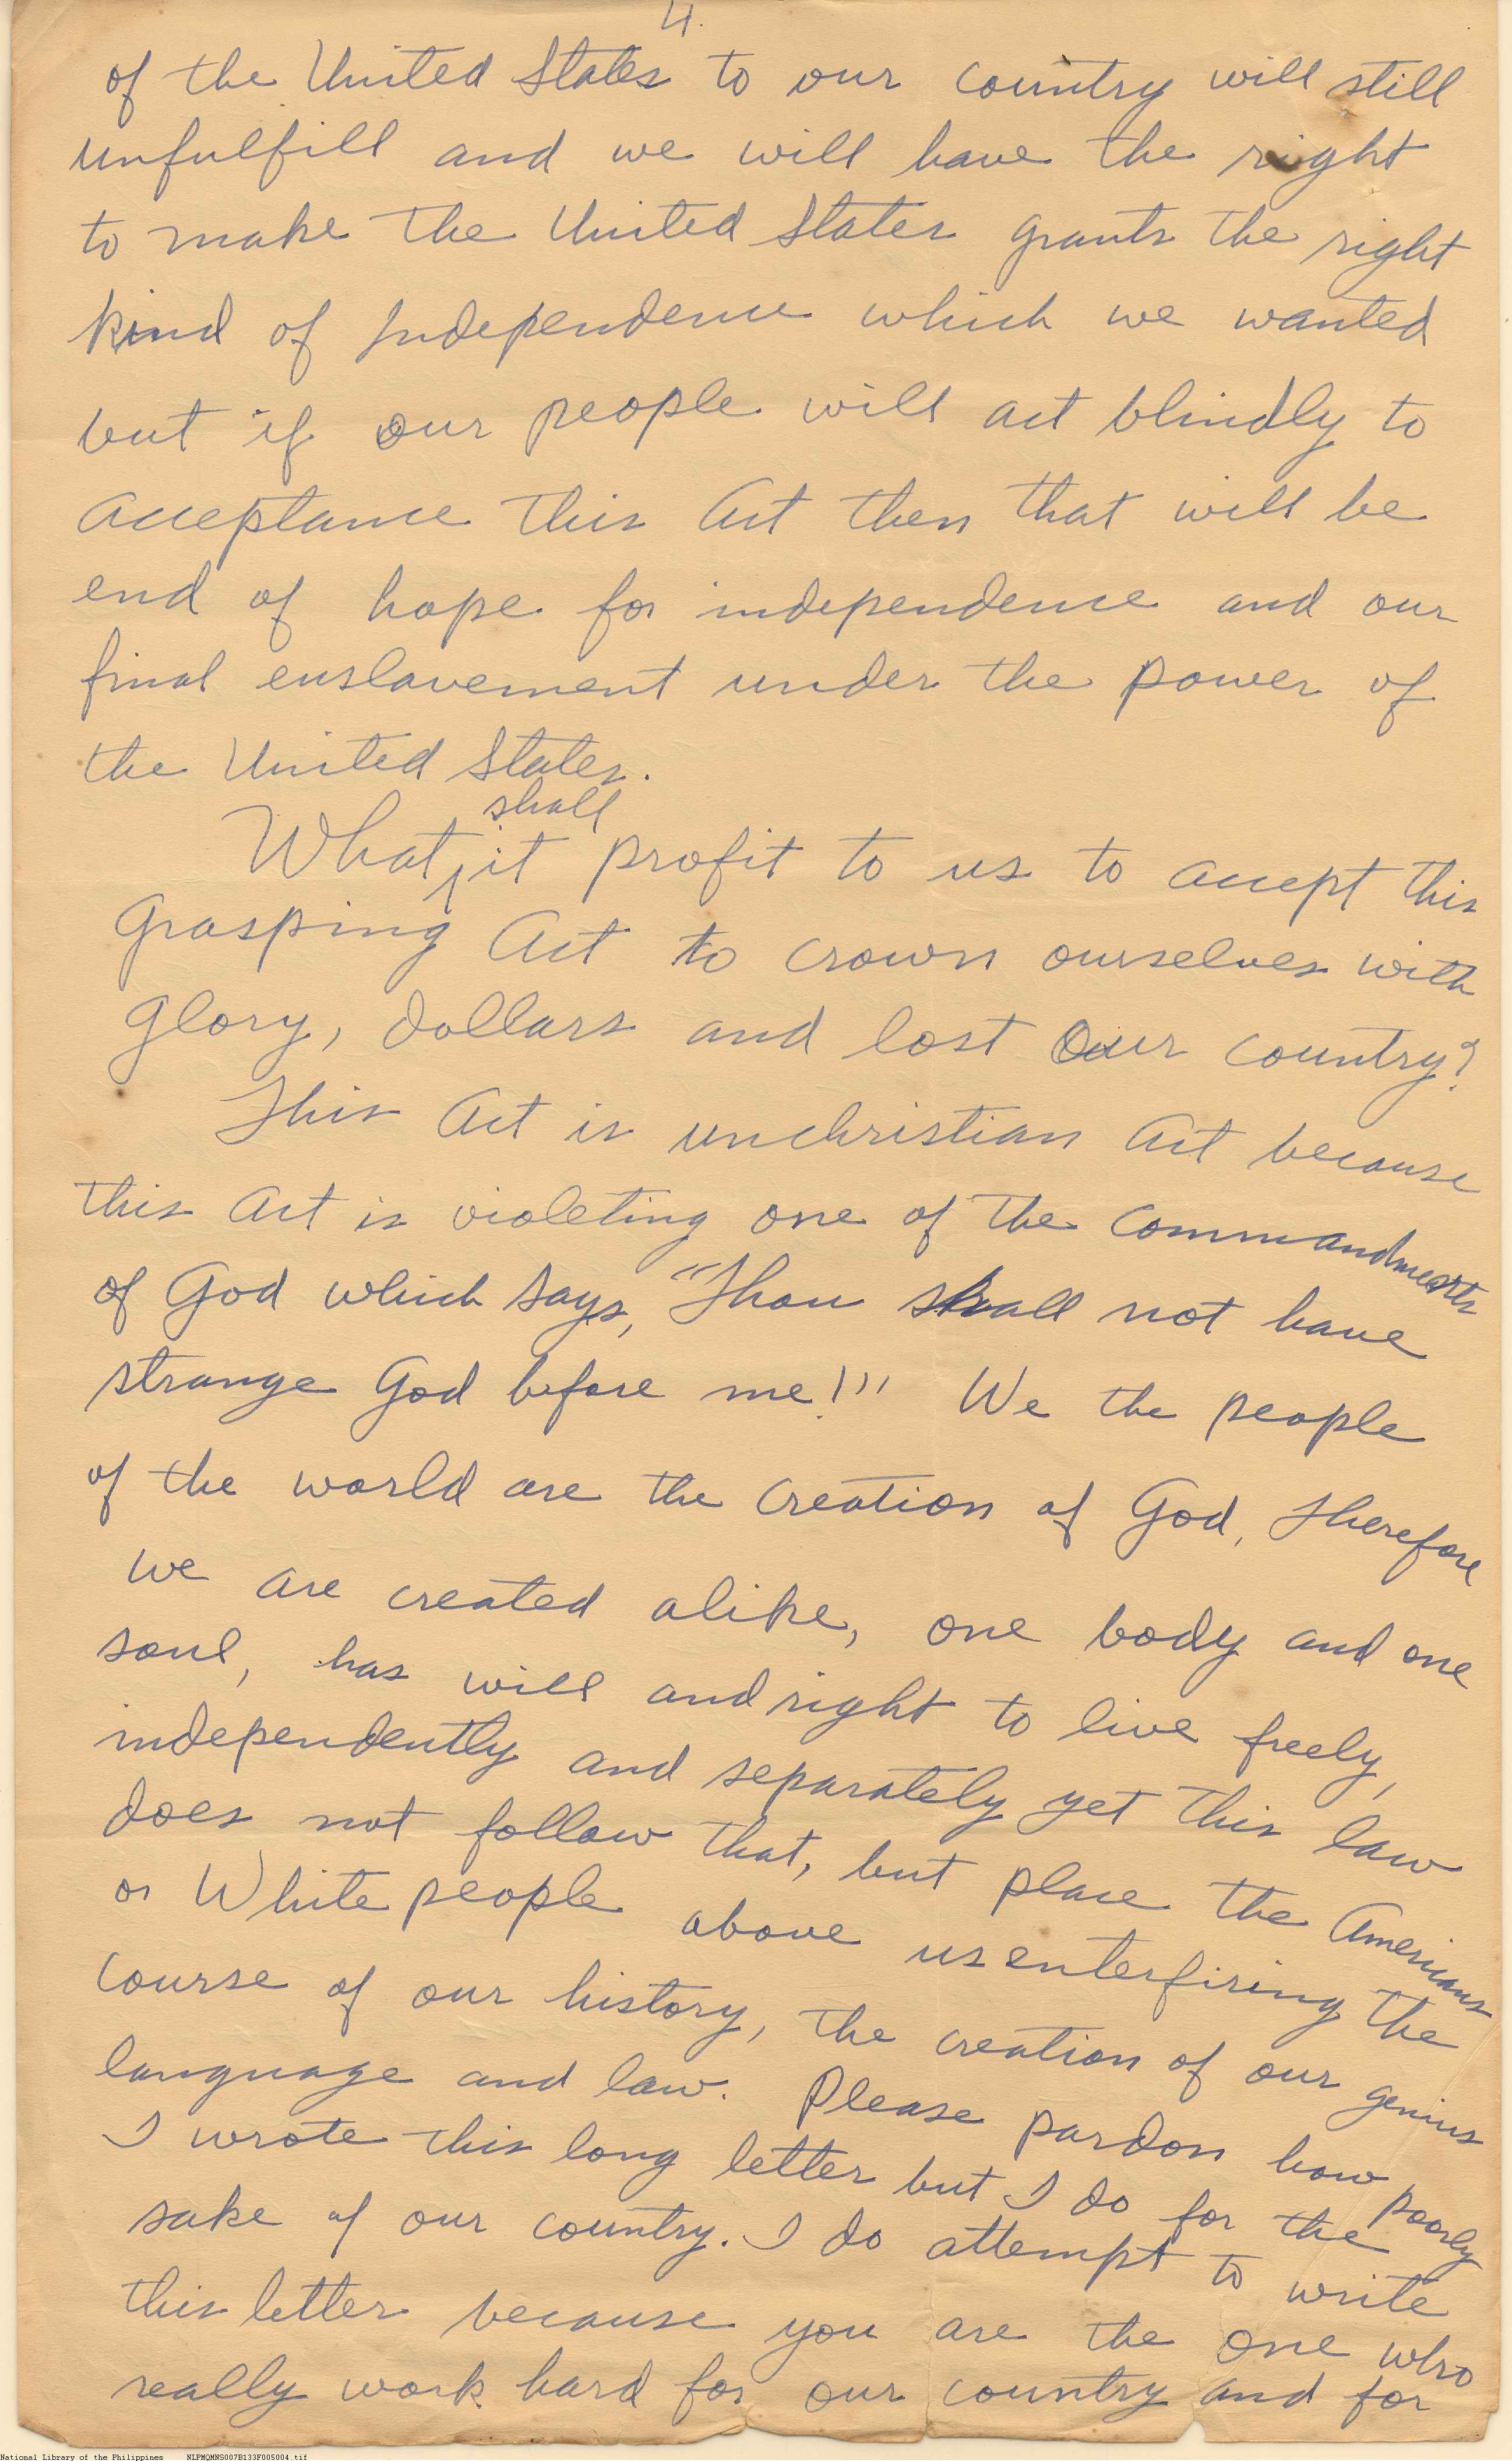 4.
of the United States to our country will still
unfulfill and we will have the right
to make the United States grants the right
kind of Independence which we wanted
but if our people will act blindly to
acceptance this Act then that will be
end of hope for independence and our
final enslavement under the power of
the United States.
shall
What, it profit to us to accept this
grasping Act to crown ourselves with
glory, dollars and lost our country?
This Act is unchristian Act because
this Act is violeting one of the commandments
of God which says, "Thou shall not have
strange God before me!" We the people
of the world are the creation of God, therefore
we are created alike, one body and one
soul, has will and right to live freely,
independently and separately yet this law
does not follow that, but place the Americans
or White people above us enterfiring the
course of our history, the creation of our genius
language and law. Please pardon how poorly
I wrote this long letter but I do for the
sake of our country. I do attempt to write
this letter because you are the one who
really work hard for our country and for
National Library of the Philippines NLPMQMNS007B133F005004.tif